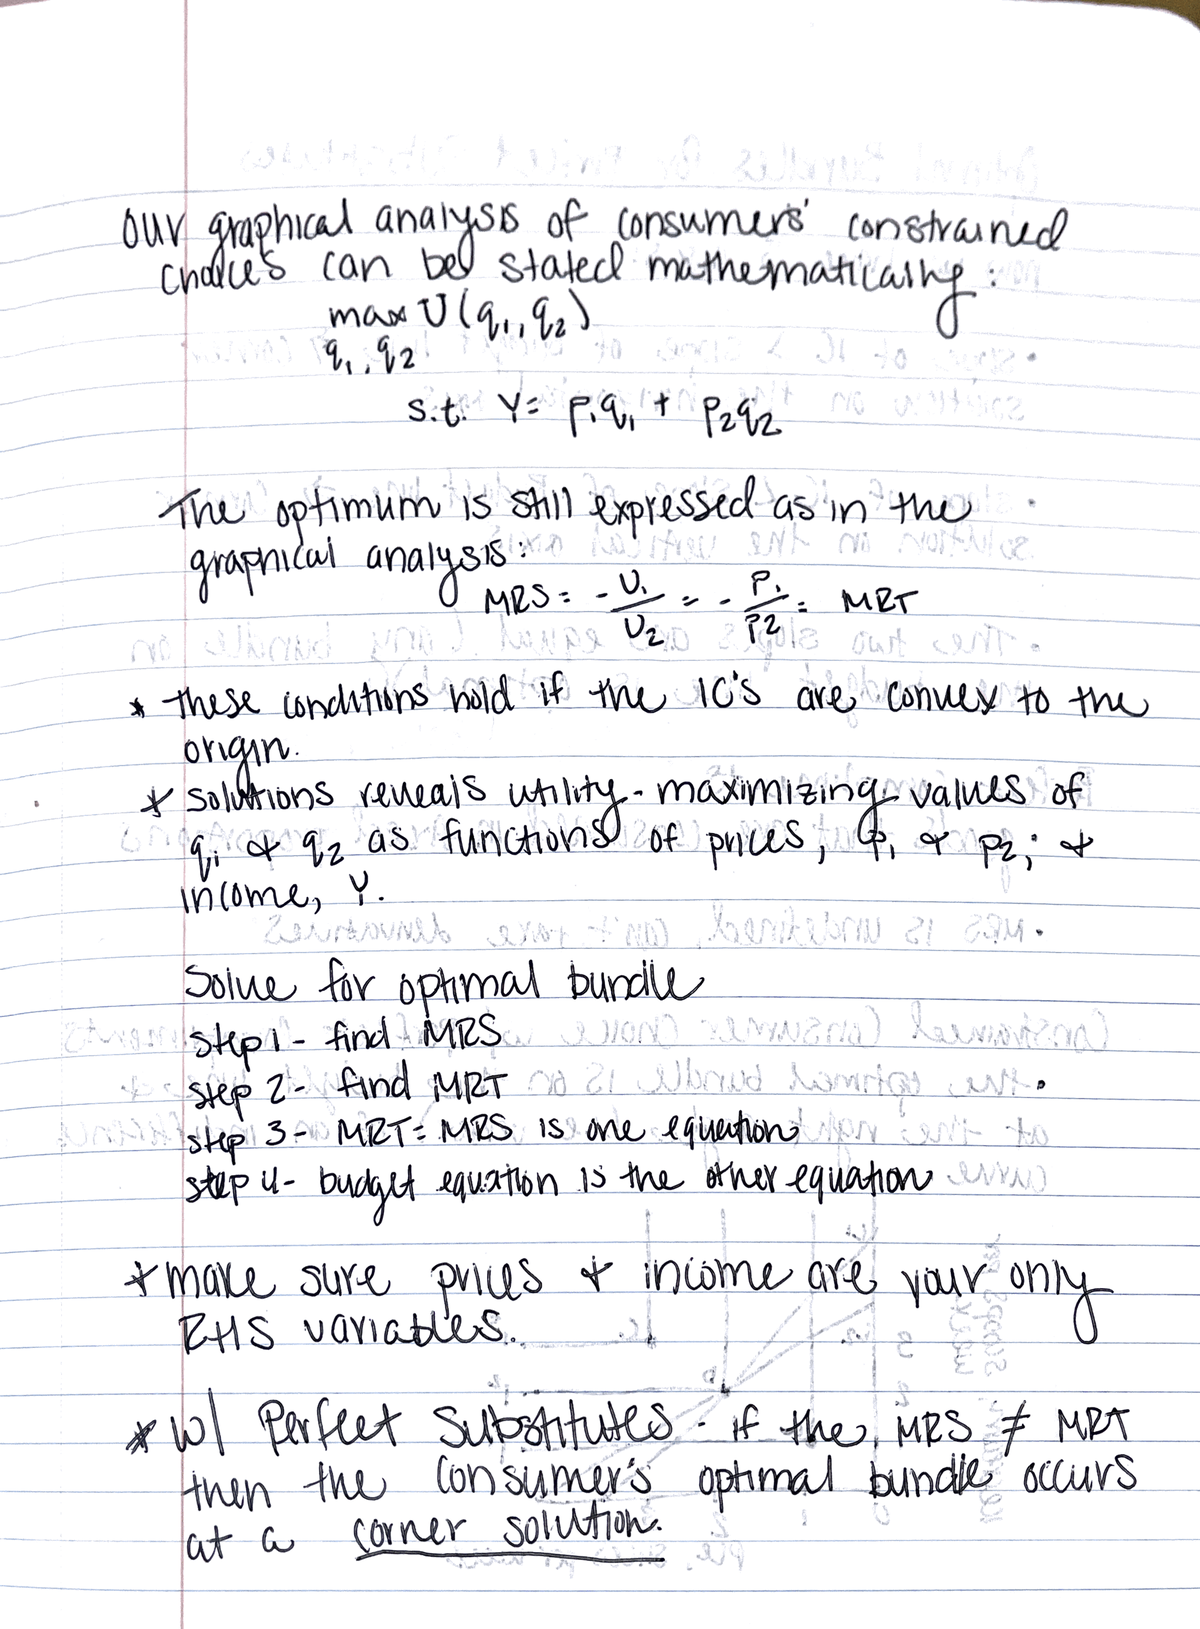 our graphical analysis of consumers' constrained
choices can be stated mathematically:
max U(q₁, q₂)
q₁, q₂
s.t. Y = p₁q₁ + p₂q₂
The optimum is still expressed as in the
graphical analysis:
MRS = - U₁/U₂ = - P₁/P₂ = MRT
* These conditions hold if the IC's are convex to the
origin.
* solutions reveals utility-maximizing values of
q₁ & q₂ as functions of prices, p₁ & p₂; &
income, Y.
Solve for optimal bundle
step 1 - find MRS
step 2 - find MRT
step 3 - MRT = MRS is one equation
step 4 - budget equation is the other equation
* make sure prices & income are your only
RHS variables.
* w/ Perfect Substitutes - if the MRS ≠ MRT
then the consumer's optimal bundle occurs
at a corner solution.